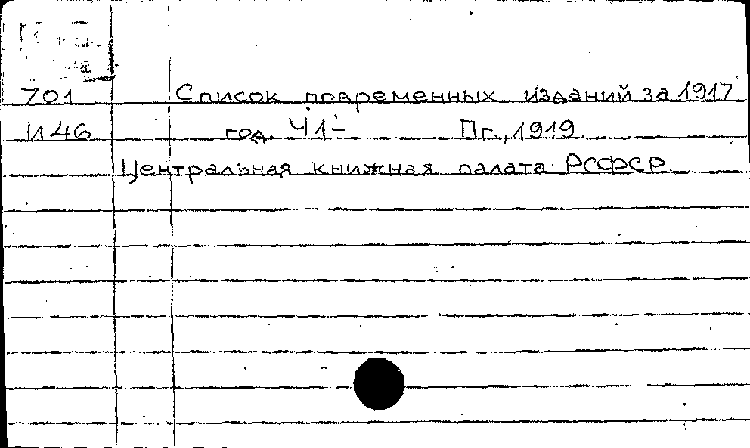 701 Список повременных изданий за 1917
И46 год. Ч 1- Пг., 1919.
Центральная книжная палата РСФСР